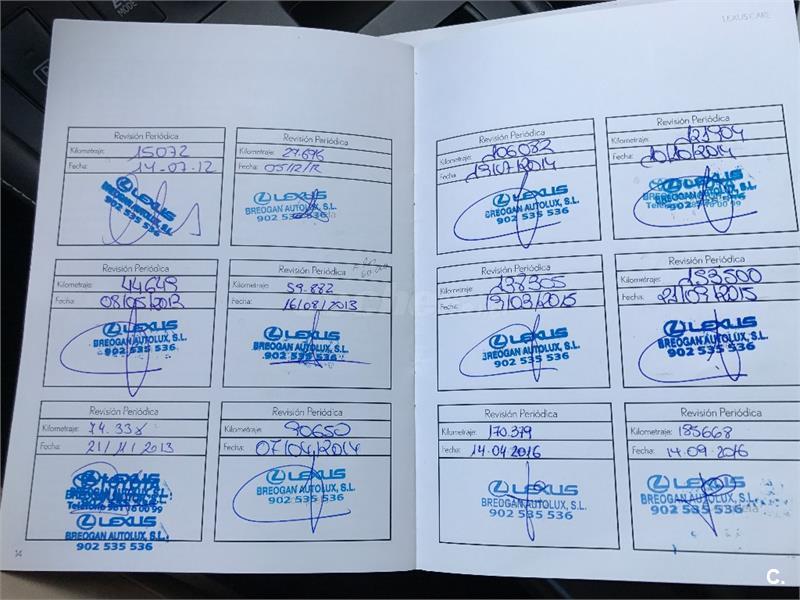 LEXUS CARE
Revisión Periódica
Kilometraje: 15072
Fecha: 14-07-12
LEXUS
BREOGAN AUTOLUX, S.L.
902 535 536
Revisión Periódica
Kilometraje: 29.696
Fecha: 05/12/12
LEXUS
BREOGAN AUTOLUX, S.L.
902 535 536
Revisión Periódica
Kilometraje: 44649
Fecha: 08/05/2013
LEXUS
BREOGAN AUTOLUX, S.L.
902 535 536
Revisión Periódica
Kilometraje: 59.882
Fecha: 16/08/2013
LEXUS
BREOGAN AUTOLUX, S.L.
902 535 536
Revisión Periódica
Kilometraje: 74.338
Fecha: 21/11/2013
LEXUS
LEXUS
BREOGAN AUTOLUX, S.L.
902 535 536
Revisión Periódica
Kilometraje: 90650
Fecha: 07/04/2014
LEXUS
BREOGAN AUTOLUX, S.L.
902 535 536
14
Revisión Periódica
Kilometraje: 106082
Fecha: 19/07/2014
LEXUS
BREOGAN AUTOLUX, S.L.
902 535 536
Revisión Periódica
Kilometraje: 121904
Fecha:
Revisión Periódica
Kilometraje: 138305
Fecha: 19/03/2015
LEXUS
BREOGAN AUTOLUX, S.L.
902 535 536
Revisión Periódica
Kilometraje: 153500
Fecha:
LEXUS
BREOGAN AUTOLUX, S.L.
902 535 536
Revisión Periódica
Kilometraje: 170.379
Fecha: 14-04-2016
LEXUS
BREOGAN AUTOLUX, S.L.
902 535 536
Revisión Periódica
Kilometraje: 185668
Fecha: 14-09-2016
LEXUS
BREOGAN AUTOLUX, S.L.
902 535 536
C.